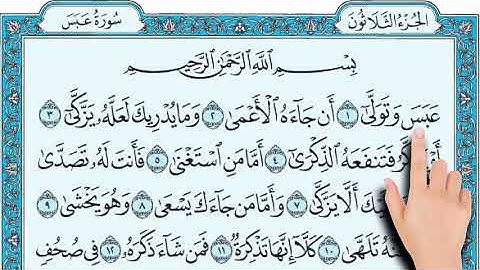 الجُزءُ الثَّلَاثُونَ
سُورَةُ عَبَسَ
بِسْمِ اللَّهِ الرَّحْمَٰنِ الرَّحِيمِ
عَبَسَ وَتَوَلَّىٰ ١ أَن جَاءَهُ الْأَعْمَىٰ ٢ وَمَا يُدْرِيكَ لَعَلَّهُ يَزَّكَّىٰ ٣
فَتَنفَعَهُ الذِّكْرَىٰ ٤ أَمَّا مَنِ اسْتَغْنَىٰ ٥ فَأَنتَ لَهُ تَصَدَّىٰ
أَلَّا يَزَّكَّىٰ ٧ وَأَمَّا مَن جَاءَكَ يَسْعَىٰ ٨ وَهُوَ يَخْشَىٰ ٩
تَلَهَّىٰ ١٠ كَلَّا إِنَّهَا تَذْكِرَةٌ ١١ فَمَن شَاءَ ذَكَرَهُ ١٢ فِي صُحُفٍ